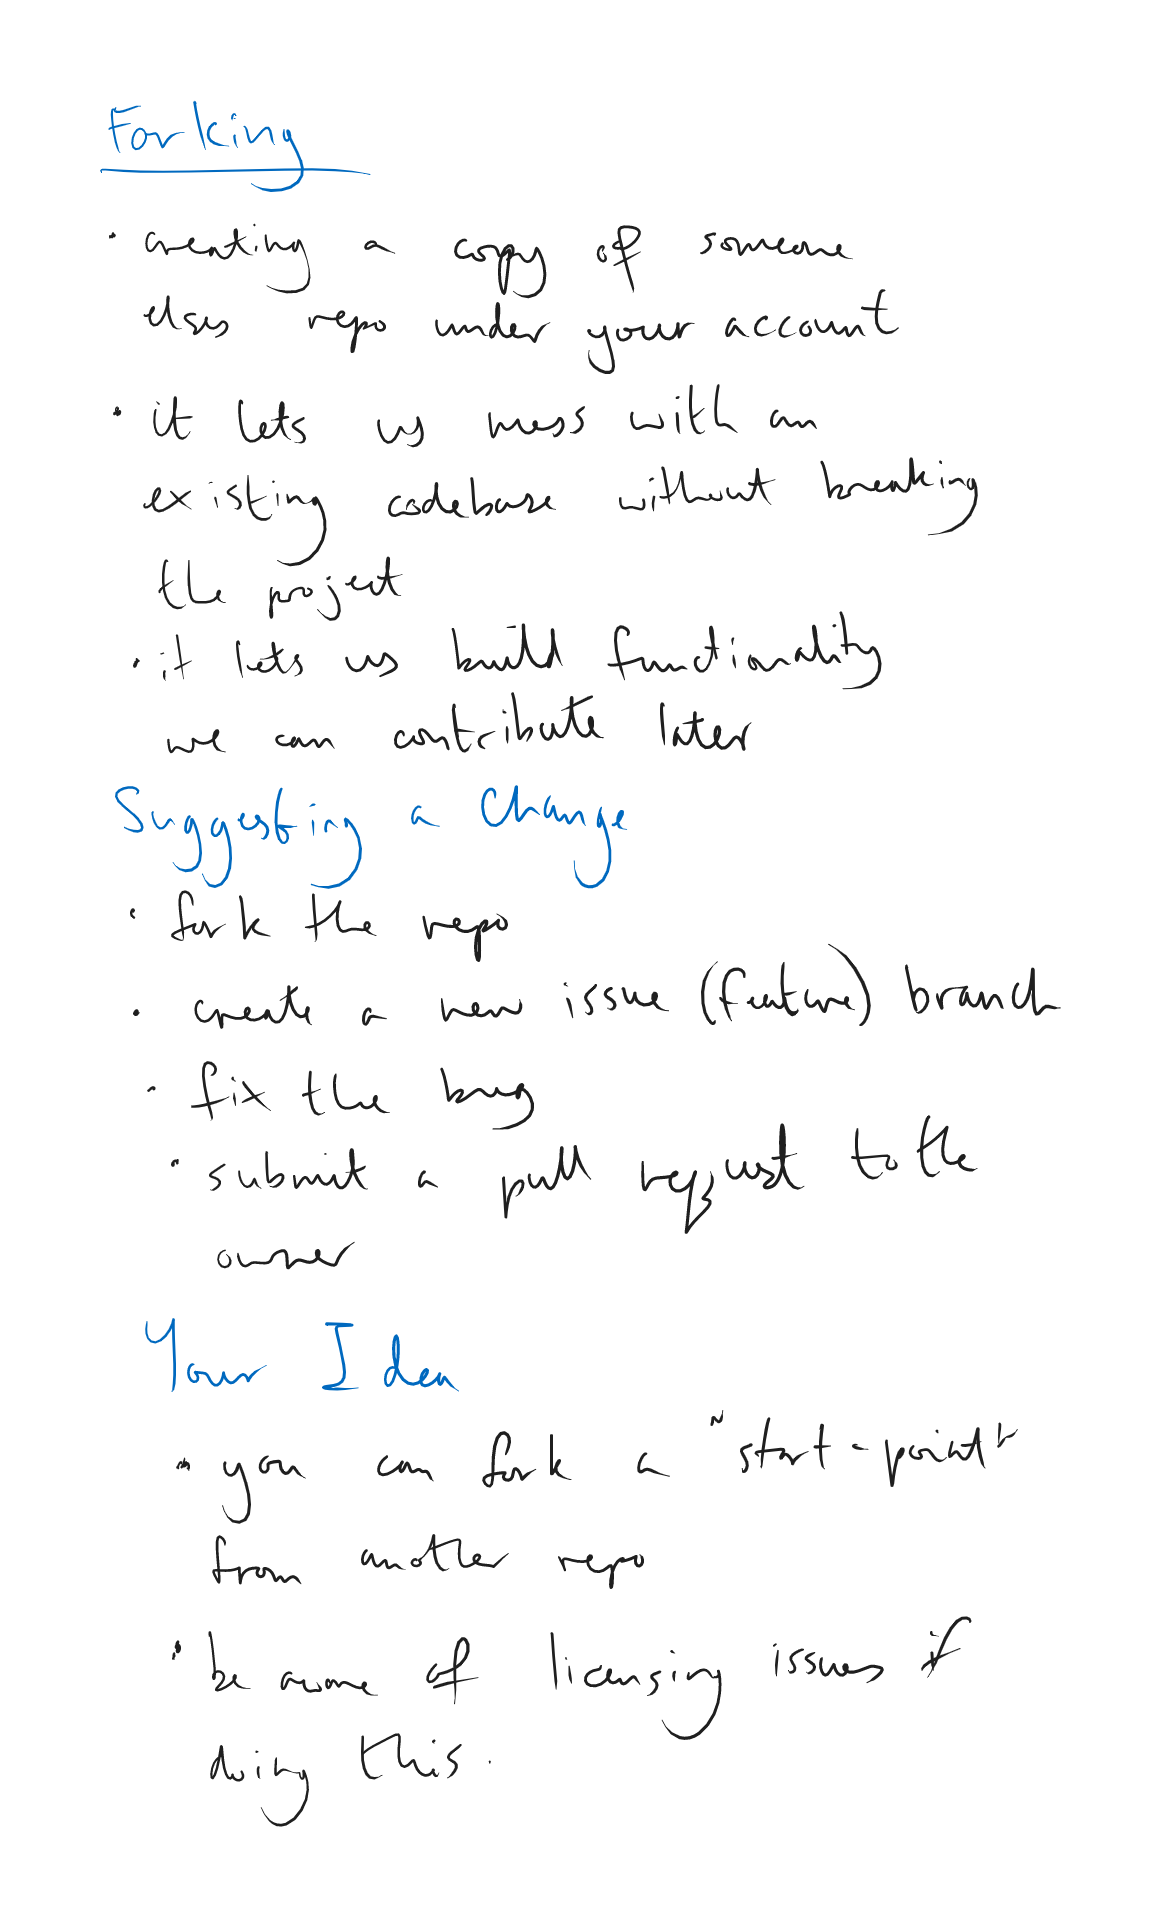 Forking
· creating a copy of someone
elses repo under your account
· it lets us mess with an
existing codebase without breaking
the project
· it lets us build functionality
we can contribute later
Suggesting a Change
· fork the repo
· create a new issue (feature) branch
· fix the bug
· submit a pull request to the
owner
Your Idea
· you can fork a "start-point"
from another repo
· be aware of licensing issues if
doing this.